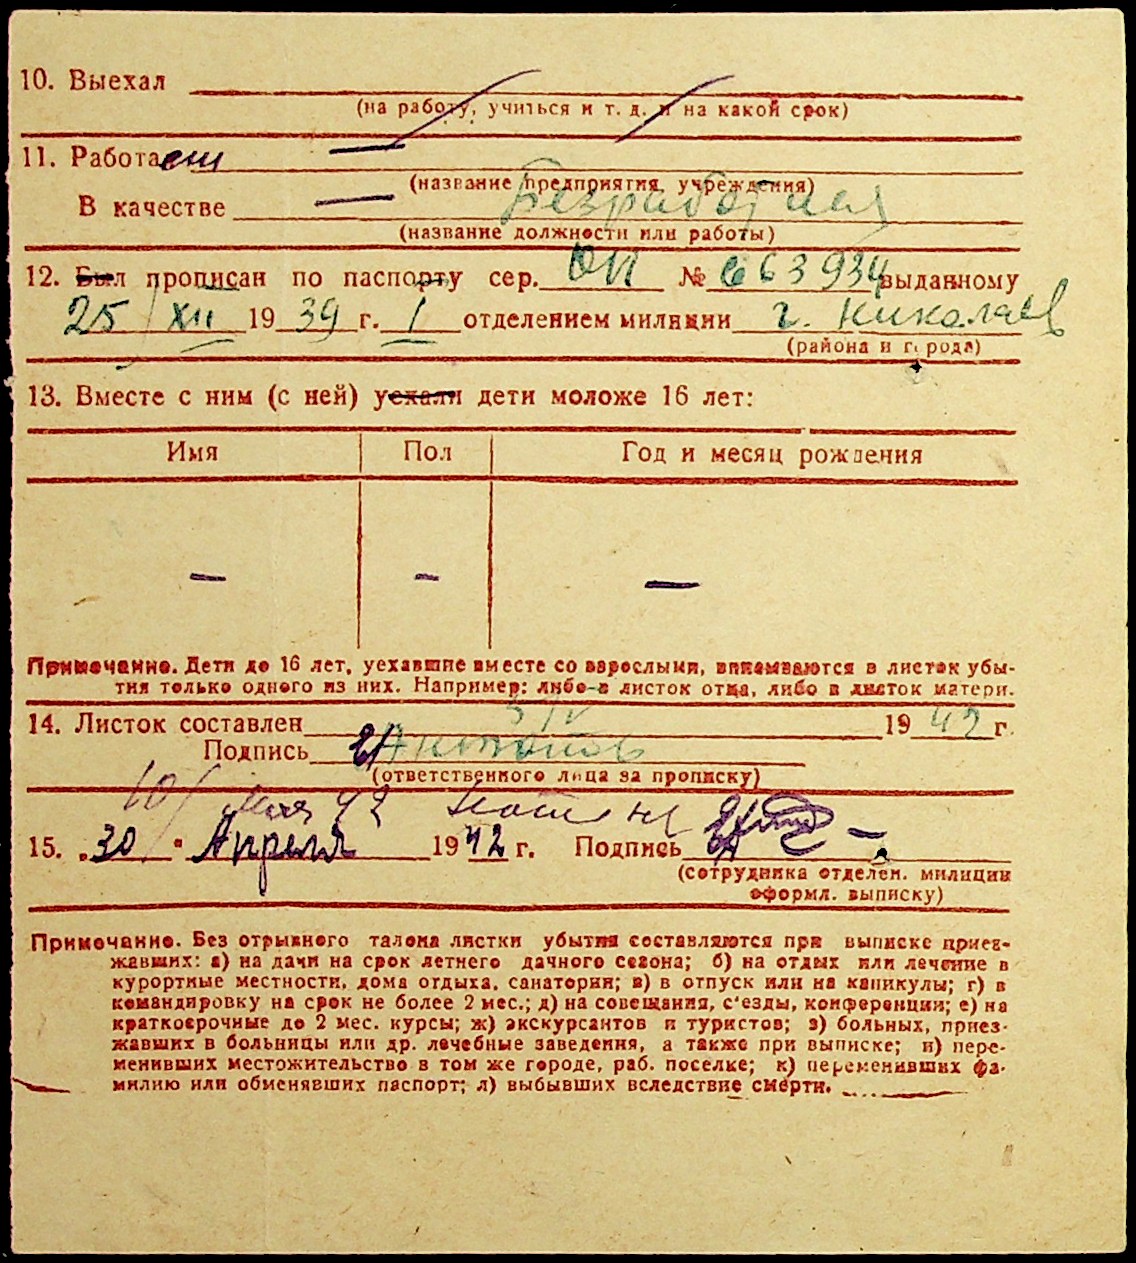 10. Выехал
(на работу, учиться и т. д. и на какой срок)
11. Работает —
(название предприятия, учреждения)
В качестве — Безработная
(название должности или работы)
12. Был прописан по паспорту сер. ОП № 663934 выданному
25/XII 1939 г. I отделением милиции г. Николаев
(района и города)
13. Вместе с ним (с ней) уехали дети моложе 16 лет:
Имя Пол Год и месяц рождения
— — —
Примечание. Дети до 16 лет, уехавшие вместе со взрослыми, вписываются в листок убы-
тия только одного из них. Например: либо в листок отца, либо в листок матери.
14. Листок составлен 5/V 1942 г.
Подпись
(ответственного лица за прописку)
10/ мая 42
15. „30" Апреля 1942 г. Подпись
(сотрудника отделен. милиции
оформл. выписку)
Примечание. Без отрывного талона листки убытия составляются при выписке приез-
жавших: а) на дачи на срок летнего дачного сезона; б) на отдых или лечение в
курортные местности, дома отдыха, санатории; в) в отпуск или на каникулы; г) в
командировку на срок не более 2 мес.; д) на совещания, с'езды, конференции; е) на
краткосрочные до 2 мес. курсы; ж) экскурсантов и туристов; з) больных, приез-
жавших в больницы или др. лечебные заведения, а также при выписке; и) пере-
менивших местожительство в том же городе, раб. поселке; к) переменивших фа-
милию или обменявших паспорт; л) выбывших вследствие смерти.